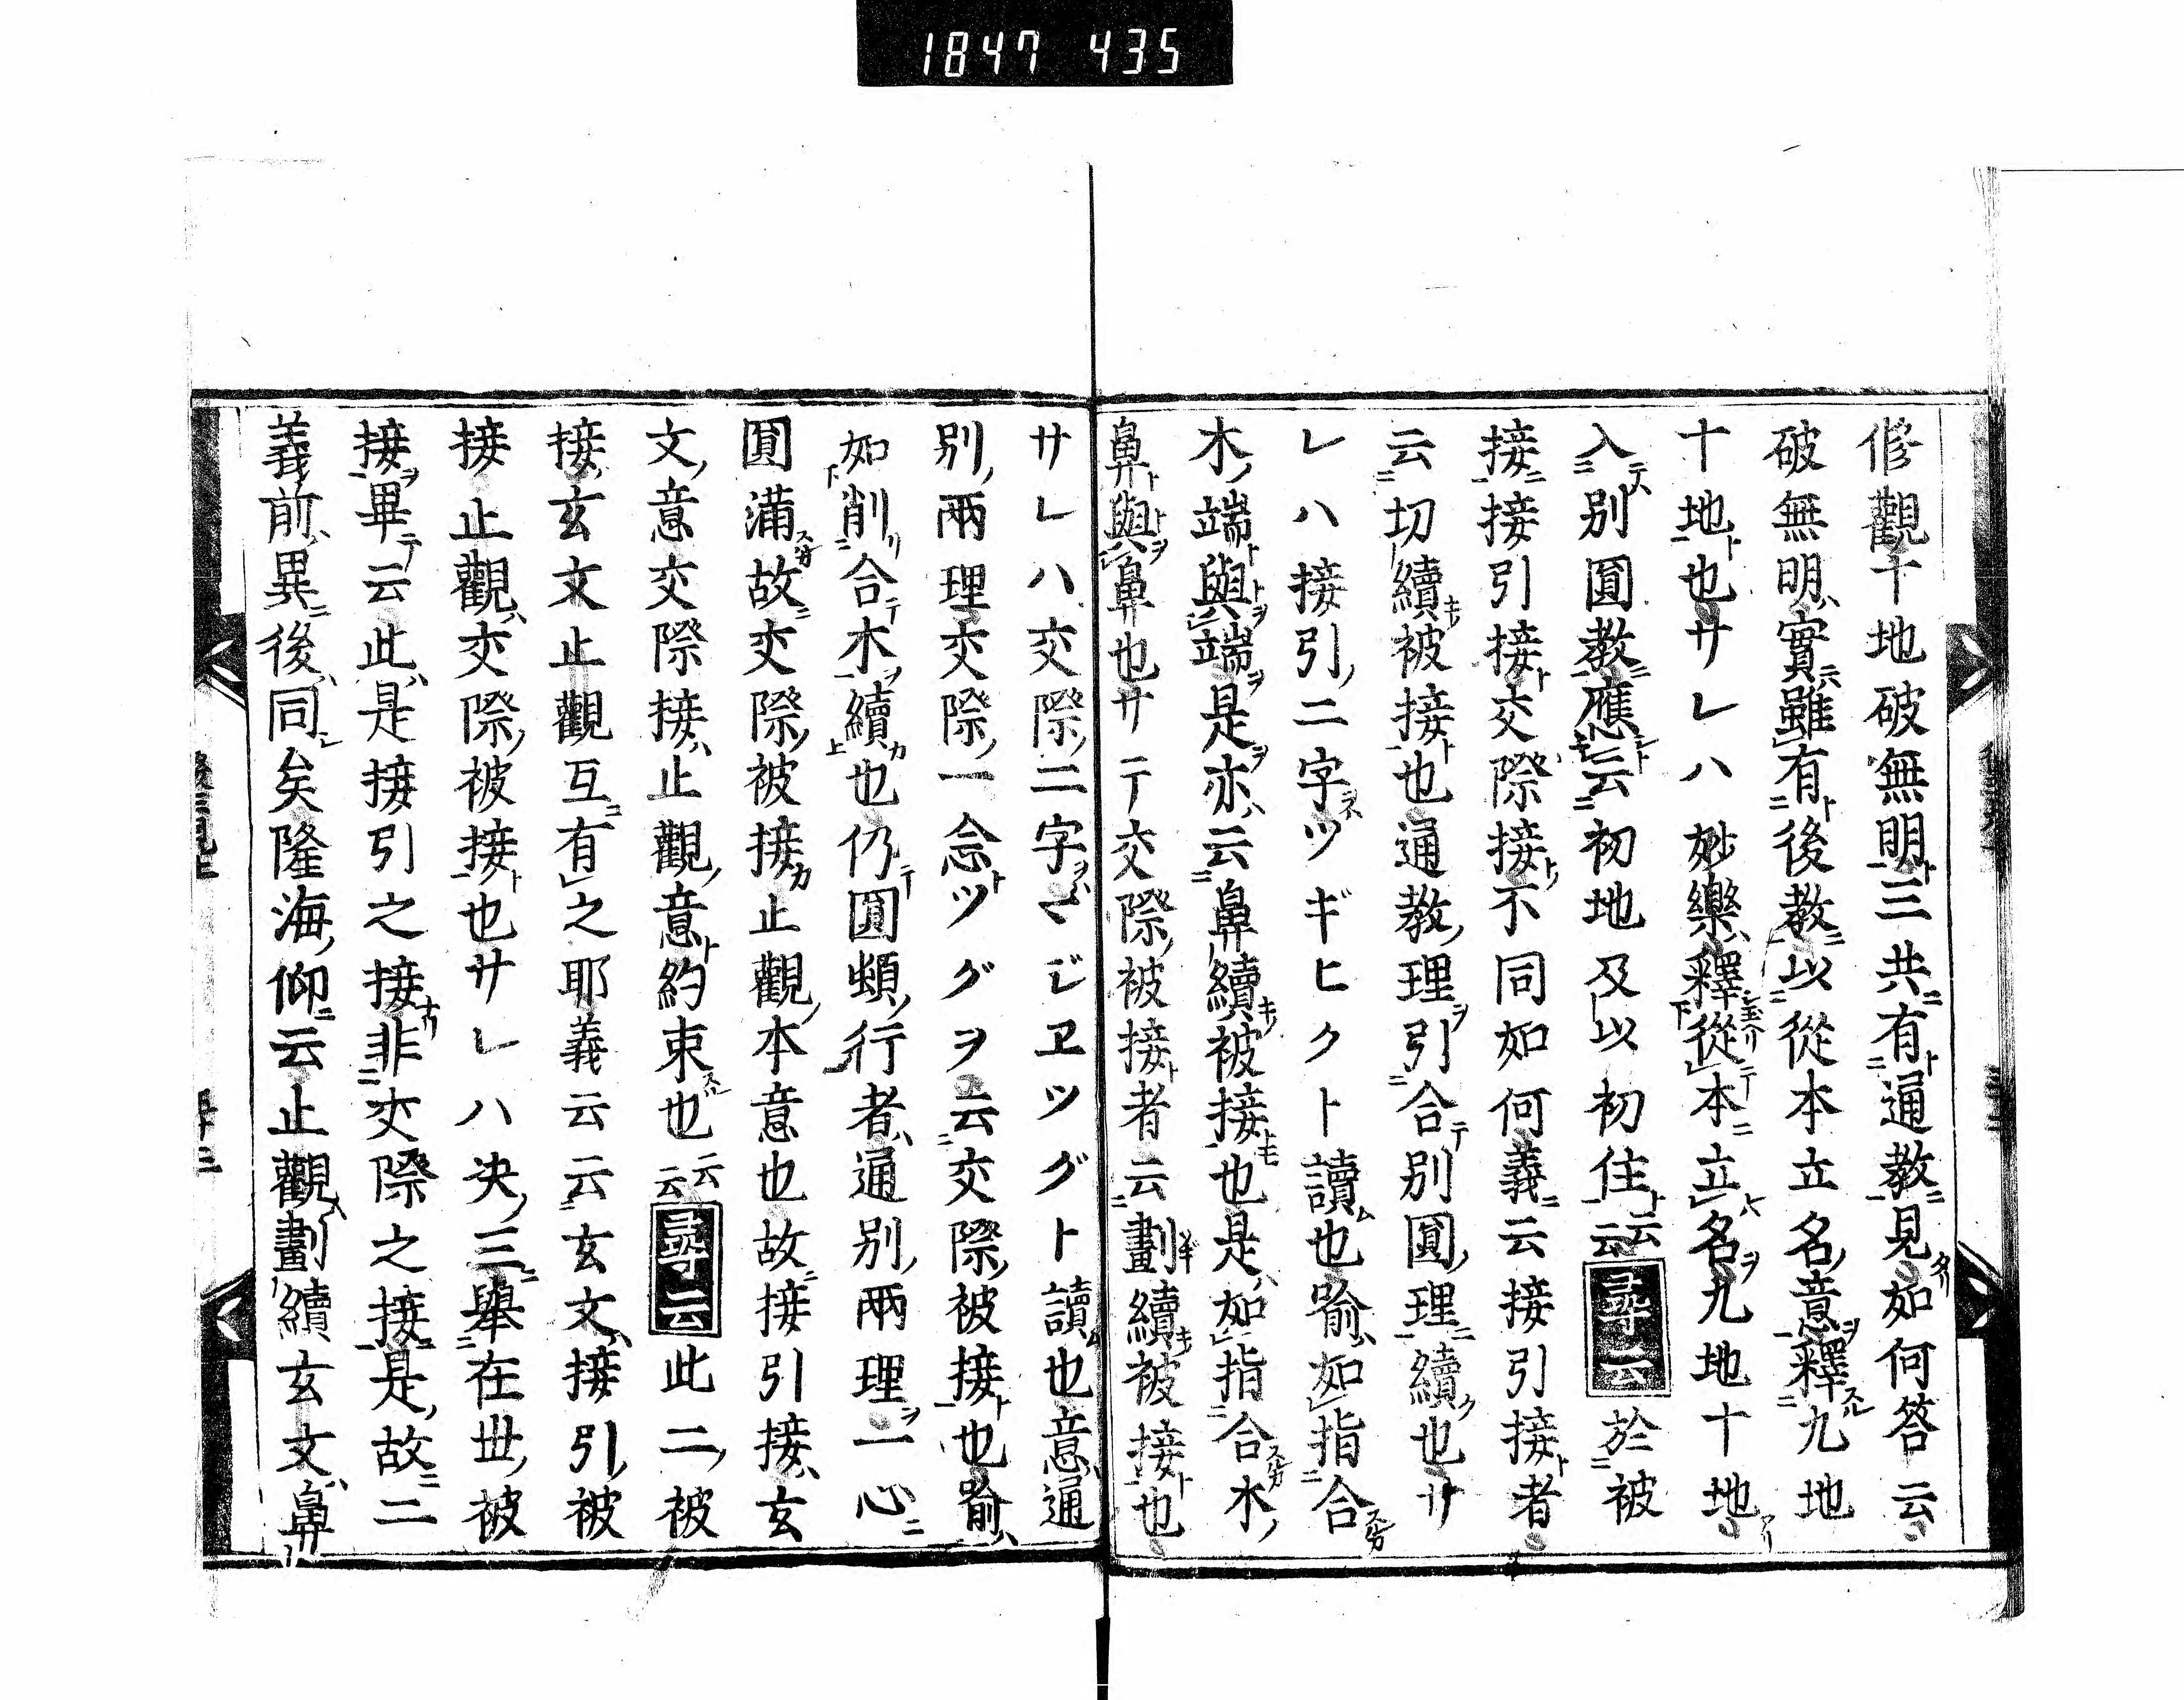 1847 435
修觀十地破無明三共有通教見如何答云
破無明實雖有後教以從本立名意釋九地
十地也サレハ妙樂釋從本立名九地十地
入別圓教應云初地及以初住云云 尋云 於被
接接引接交際接不同如何義云接引接者
云切續被接也通教理引合別圓理續也サ
レハ接引二字ツギヒクト讀也喻如指合
木端與端是亦云鼻續被接也是如指合木
鼻與鼻也サテ交際被接者云劃續被接也
サレハ交際二字マジヱツグト讀也意通
別兩理交際一念ツグヲ云交際被接也喻
如削合木續也仍圓頓行者通別兩理一心
圓滿故交際被接止觀本意也故接引接玄
文意交際接止觀意約束也云云 尋云 此二被
接玄文止觀互有之耶義云云玄文接引被
接止觀交際被接也サレハ决三舉在世被
接畢云此是接引之接非交際之接是故二
義前異後同矣隆海仰云止觀劃續玄文鼻